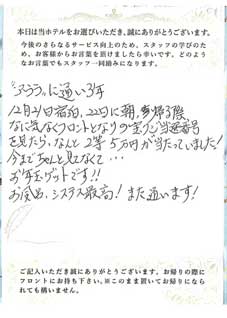 本日は当ホテルをお選びいただき、誠にありがとうございます。
今後のさらなるサービス向上のため、スタッフの学びのため、お客様からお言葉を頂けましたら幸いです。どのようなお言葉でもスタッフ一同励みになります。
アラフに通い3年
12月21日宿泊、22日に朝、帰る際
なに気なくフロントとなりの宝クジ当選番号
を見たら、なんと2等5万円が当たっていました!
今までちゃんと見なくて…
お年玉ゲットです!!
お風呂、システム最高!また通います!
ご記入いただき誠にありがとうございます。お帰りの際に
フロントにお持ち下さい。※このまま置いてお帰りになら
れても構いません。